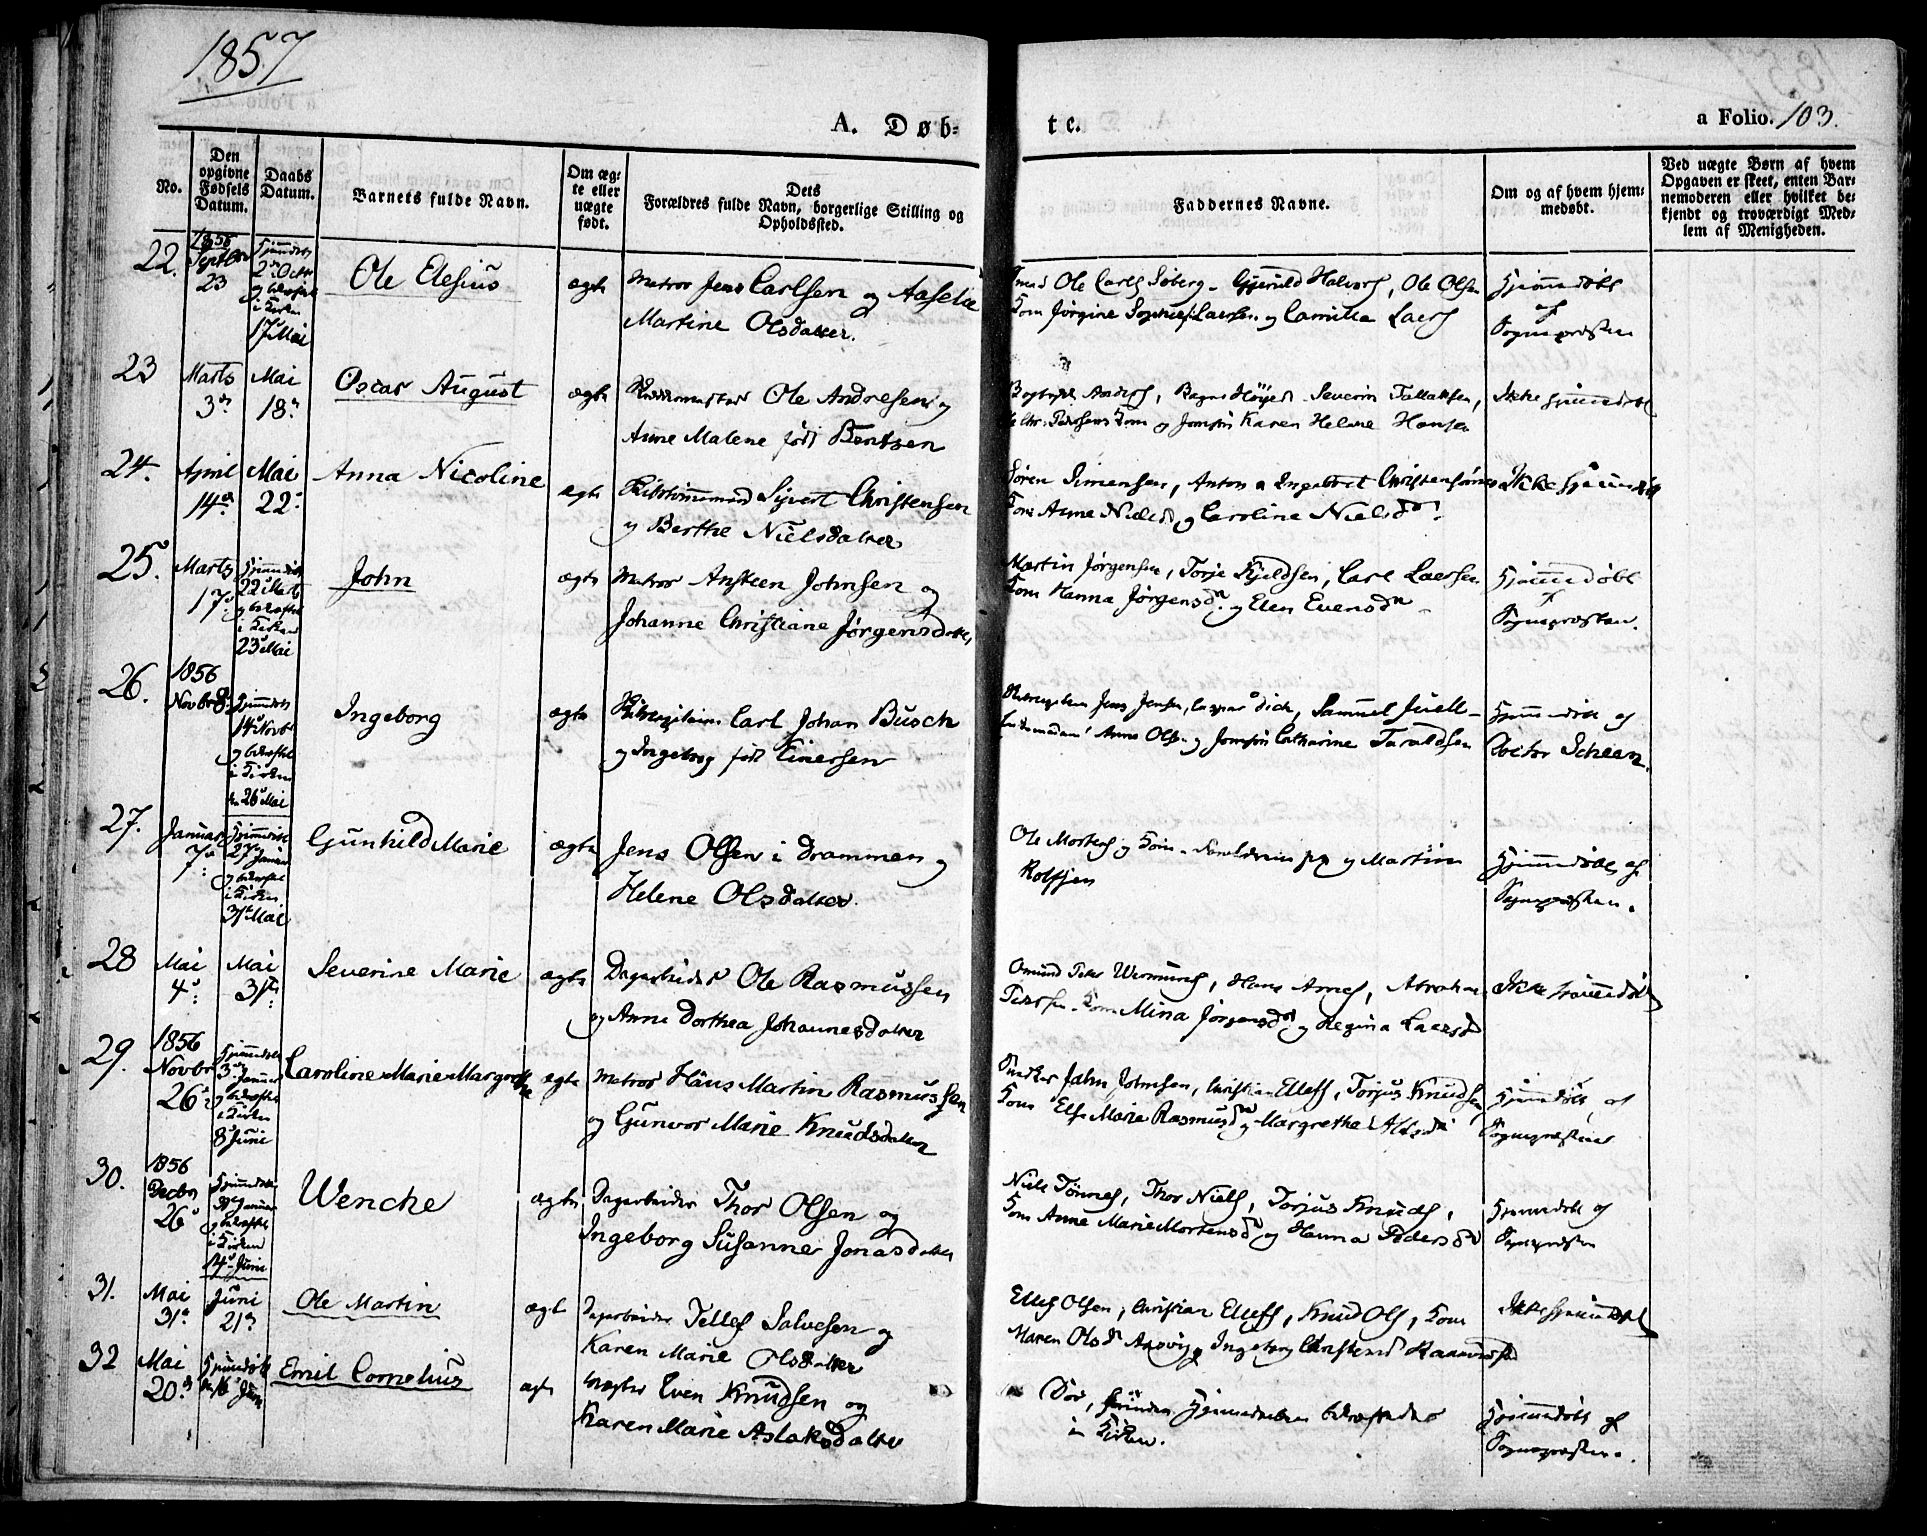 1857
A. Døb-
tc.
a Folio. 103.
No.
Den
opgivne
Fødsels
Datum.
Daabs
Datum.
Barnets fulde Navn.
Om æg-
te eller
uægte
født.
Dets
Forældres fulde Navn, borgerlige Stilling og
Opholdssted.
Faddernes Navne.
Om og af hvem hjem-
medøbt.
Ved uægte Børn af hvem
Opgaven er skeet, enten Bar-
nemoderen eller hvilket be-
kjendt og troværdigt Med-
lem af Menigheden.
22.
1856
Septbr
23
Hjemmedøbt
2 Octr
og bekræftet
i Kirken
17 Mai
Ole Elesius
ægte
Matros Jens Carlsen og Aaselie
Martine Olsdatter.
Ole Carls Søberg - Halvors, Ole Olsen
Kone Jørgine Larsen og Camilla Laers
Hjemmedøbt
af
Sognepræsten
23
Marts
3
Mai
18
Oscar August
ægte
Ole Andresen og
Anne Malene født Bentsen
Severin Tallaksen,
Kone og Jomfru Karen Helene Hansen
Ikke hjemmedøbt
24.
April
14
Mai
22
Anna Nicoline
ægte
Skibstømmermand Sivert Christensen
og Berthe Nielsdatter
Søren Simensen, Anton a Ingebret Christensønner
Kone Anne Nielsd og Caroline Nielsd.
Ikke hjemmedøbt
25.
Marts
17
Hjemmedøbt
22 Marts
og bekræftet
i Kirken
23 Mai
John
ægte
Matros Ansteen Johnsen og
Johanne Christiane Jørgensdatter
Martin Jørgensen, Torje Kjeldsen, Carl Laersen
Kone Hanna Jørgensd. og Elen Evensd
Hjemmedøbt
af
Sognepræsten.
26.
1856
Novbr 8
Hjemmedøbt
14 Novbr
og bekræftet
i Kirken
den 26 Mai
Ingeborg
ægte
Skibscapitain Carl Johan Busch
og Ingeborg født Einersen
Skibscapitain Jens Jensen, Casper Dick, Samuel Juell
Anne Olsen og Jomfru Cathrine Taraldsen
Hjemmedøbt af
Doctor Scheen.
27.
Januar
7
Hjemmedøbt
27 Januar
og bekræftet
i Kirken
31 Mai
Gunhild Marie
ægte
Jens Olsen i Drammen og
Helene Olsdatter.
Ole Mortens og Kone og Martin
Rolfsen
Hjemmedøbt af
Sognepræsten.
28
Mai
4
Mai
31
Severine Marie
ægte
Dagarbeider Ole Rasmussen
og Anne Dorthea Johannesdatter
Hans Arnes, Abraham
Kone Mina Jørgensd og Regina Laersd
Ikke hjemmedøbt
29.
1856
Novbr
26
Hjemmedøbt
3 Januar
og bekræftet
i Kirken
8 Juni
Caroline Marie Margrethe
ægte
Matros Hans Martin Rasmussen
og Gunvor Marie Knudsdatter
Snedker John Johnsen, Christian Ellefs, Torjus Knudsen
Kone Else Marie Rasmusd og Margrethe
Hjemmedøbt af
Sognepræsten
30.
1856
Decbr
26
Hjemmedøbt
Januar
og bekræftet
i Kirken
14 Juni
Wencke
ægte
Dagarbeider Thor Olsen og
Ingeborg Susanne Jonasdatter
Niels Tønnes, Thor Niels, Torjus Knuds,
Kone Anne Marie Mortensd og Hanna Pedersd
Hjemmedøbt af
Sognepræsten
31.
Mai
31
Juni
21
Ole Martin
ægte
Dagarbeider Tellef Salvesen og
Karen Marie Olsdatter
Ellef Olsen, Christian Ellefs, Knud Ols, Kone
Maren Olsd og Ingeborg
Ikke hjemmedøbt
32
Mai
20
Hjemmedøbt
Juni
Emil Cornelius
ægte
Even Knudsen og
Karen Marie Aslaksdatter
Død, førinden Hjemmedaaben bekræftedes
i Kirken.
Hjemmedøbt af
Sognepræsten.